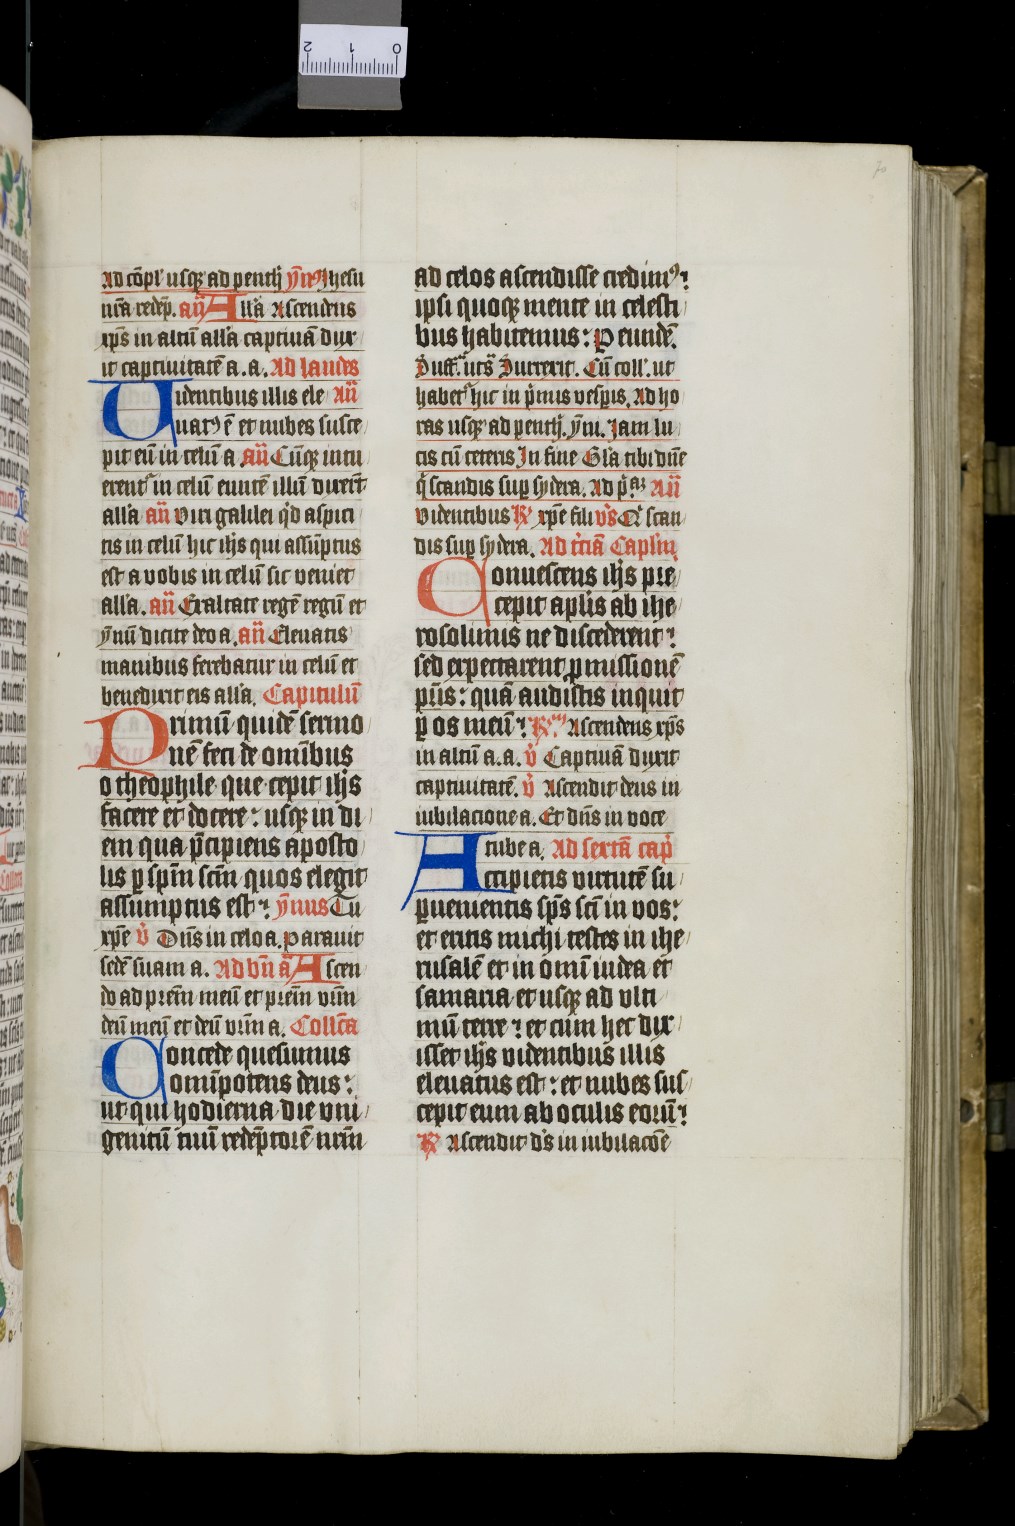 Ad cōpl' usqꝫ ad penth ȳn9 Ihesu
nr̄a redēp. an̄ Allā Ascendens
xp̄s in altū all'a captiuā dux
it captiuitatē a. a. Ad laudes
Uidentibus illis ele an̄
uatꝰ ē et nubes susce
pit eū in celū a an̄ Cūqꝫ intu
erent᷑ in celū euntē illū dixer̄t
all'a an̄ Viri galilei qͥd aspici
tis in celū hic ih̄s qui assūptus
est a vobis in celū sic veniet
all'a. an̄ Exaltate regē regū et
ȳnū dicite deo a. an̄ Eleuatis
manibus ferebatur in celū et
benedixit eis all'a. Capitulū
Primū quidē sermo
nē feci de omībus
o theophile que cepit ih̄s
facere et docere: usqꝫ in di
em qua p̄cipiens aposto
lis ꝑ spm̄ scm̄ quos elegit
assumptus est: ȳnus Tu
xp̄e v̄ Dn̄s in celo a. parauit
sedē suam a. Ad bn̄ ā Ascen
do ad prem̄ meū et prem̄ vrm̄
deū meū et deū vrm̄ a. Collc̄a
Concede quesumus
omīpotens deus:
ut qui hodierna die vni
genitū tuū redēptorē nrm̄
ad celos ascendisse credimꝰ:
ipsi quoqꝫ mente in celesti
bus habitemus: P eundē.
Suff.ͣ uts̄ Surrexit. Cū coll'. ut
habet᷑ hic in pͥmis vesꝑis. Ad ho
ras usqꝫ ad penth. ȳm. Jam lu
cis cū ceteris In fine Gl'a tibi dn̄e
q̄ scandis suꝑ sydera. Ad pͥaꝫ An̄
videntibus R' xp̄e fili vs̄ Qͥ scan
dis suꝑ sydera. Ad tciā Caplm̄
Conuescens ih̄s pre
cepit aplīs ab ihe
rosolimis ne discederent:
sed expectarent ꝓmissionē
pr̄is: quā audistis inquit
ꝑ os meū: R'm Ascendens xp̄s
in altū a. a. v̄ Captiuā duxit
captiuitatē. v̄ Ascendit deus in
iubilacione a. Et dn̄s in voce
tube a. Ad sextā cap̄
Accipietis virtutē su
ꝑuenientis sp̄s scī in vos:
et eritis michi testes in ihe
rusalē et in omī iudea et
samaria et usqꝫ ad vlti
mū terre: et cum hec dix
isset ih̄s videntibus illis
eleuatus est: et nubes sus
cepit eum ab oculis eorū:
R' Ascendit ds̄ in iubilacōe